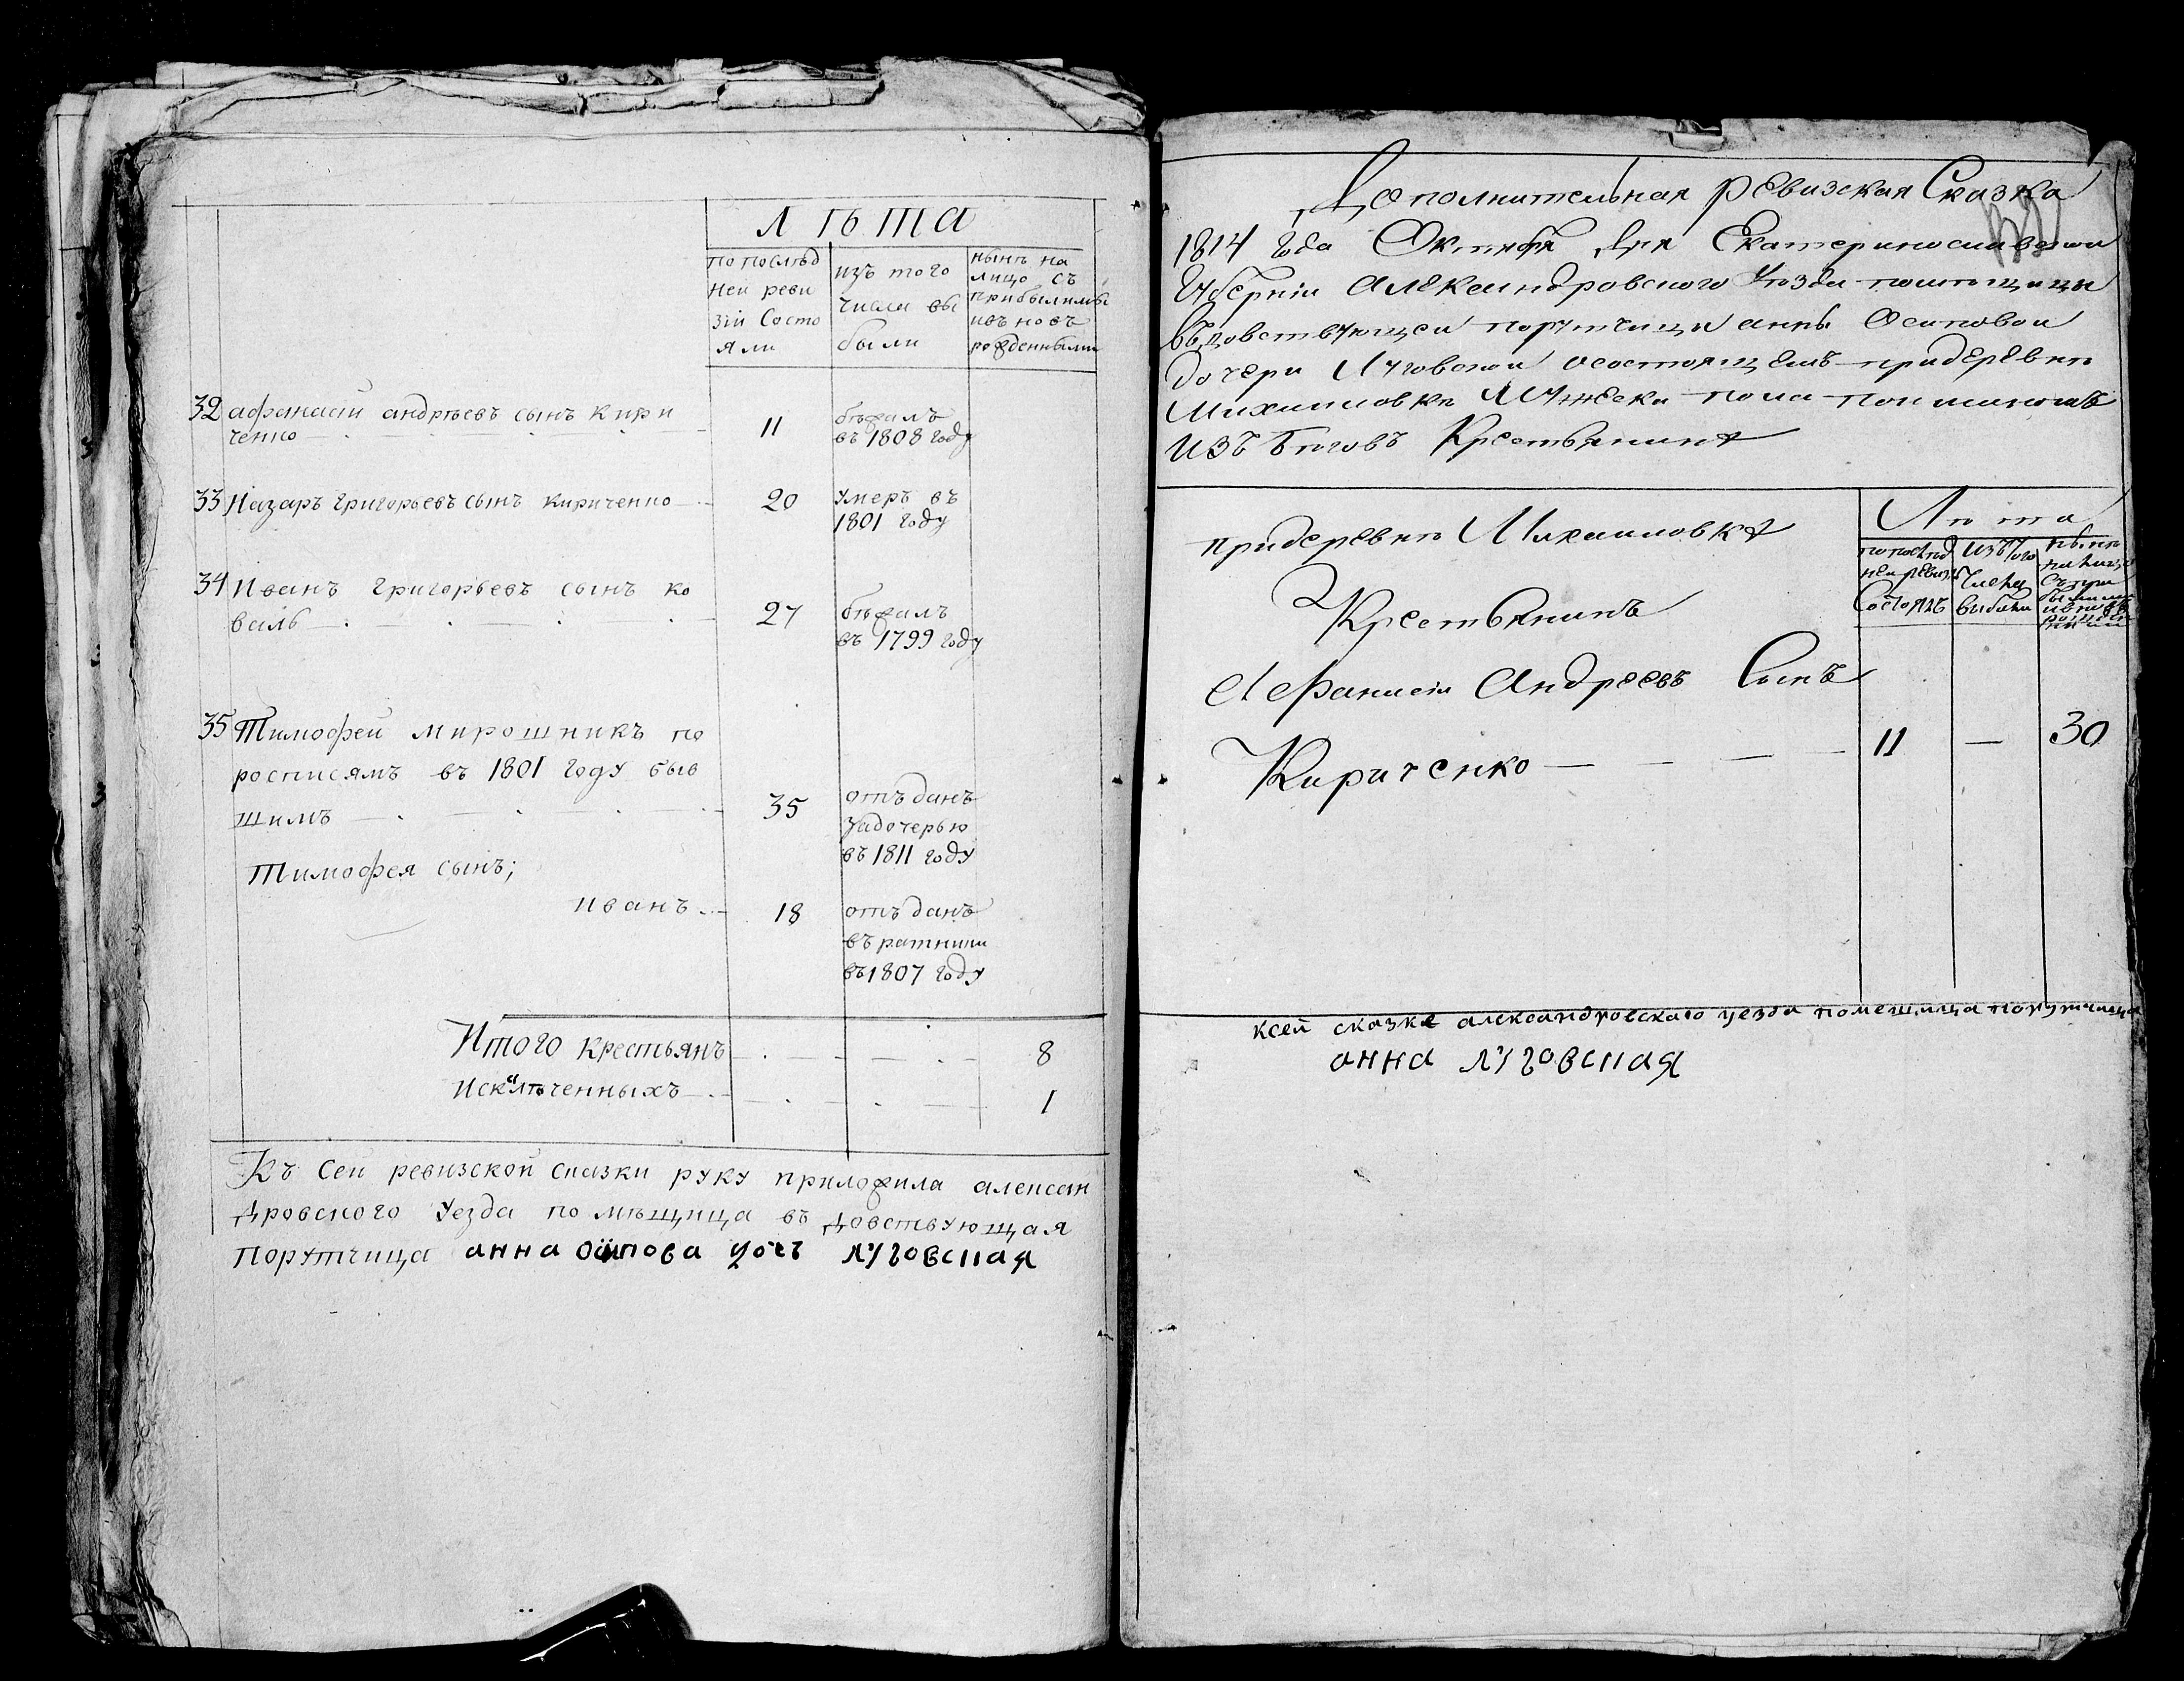 лѣта
по послѣд
ней реви
зіи состо
яли
изъ того
числа вы
были
нынѣ на
лицо съ
прибылимы
ивъновъ
рожденными
32 афанасій андрѣевъ сынъ кири
ченко
11
бѣжалъ
въ 1808 году
33 Назаръ григорьевъ сынъ кириченко
20
умеръ въ
1801 году
34 Иванъ григорьевъ сынъ ко
валь
27
бѣжалъ
въ 1799 году
35 Тимофей мирошникъ по
росписямъ въ 1801 году быв
шимъ
35
отъданъ
задочерью
въ 1811 году
Тимофея сынъ;
иванъ
18
отъданъ
въ ратники
въ 1807 году
Итого крестьянъ 8
Исключенныхъ 1
Къ сей ревизской сказки руку приложила алексан
дровского уезда помѣщица въдовствующая
порутчица анна осипова дочь луговская
Дополнительная ревизская Сказка
1814 года Октября дня Екатеринославской
Губерніи Александровского Уѣзда помѣщицы
въдовствующей порутчицы анны Осиповой
дочери Луговской осостоящемъ придеревнѣ
Михайловкѣ Мужеска пола пойманомъ
изъ бѣговъ Крестьянине
придеревнѣ Михайловке
Лѣта
попослѣд
ней ревизіи
Состоялъ
Изъ того
Числа
выбыли
нынѣ
на лицо
съ при
былыми
Крестьянинъ
Афанасій Андреевъ Сынъ
Кириченко 11 — 30
ксей сказке александровскаго уезда помещица порутчица
анна луговская